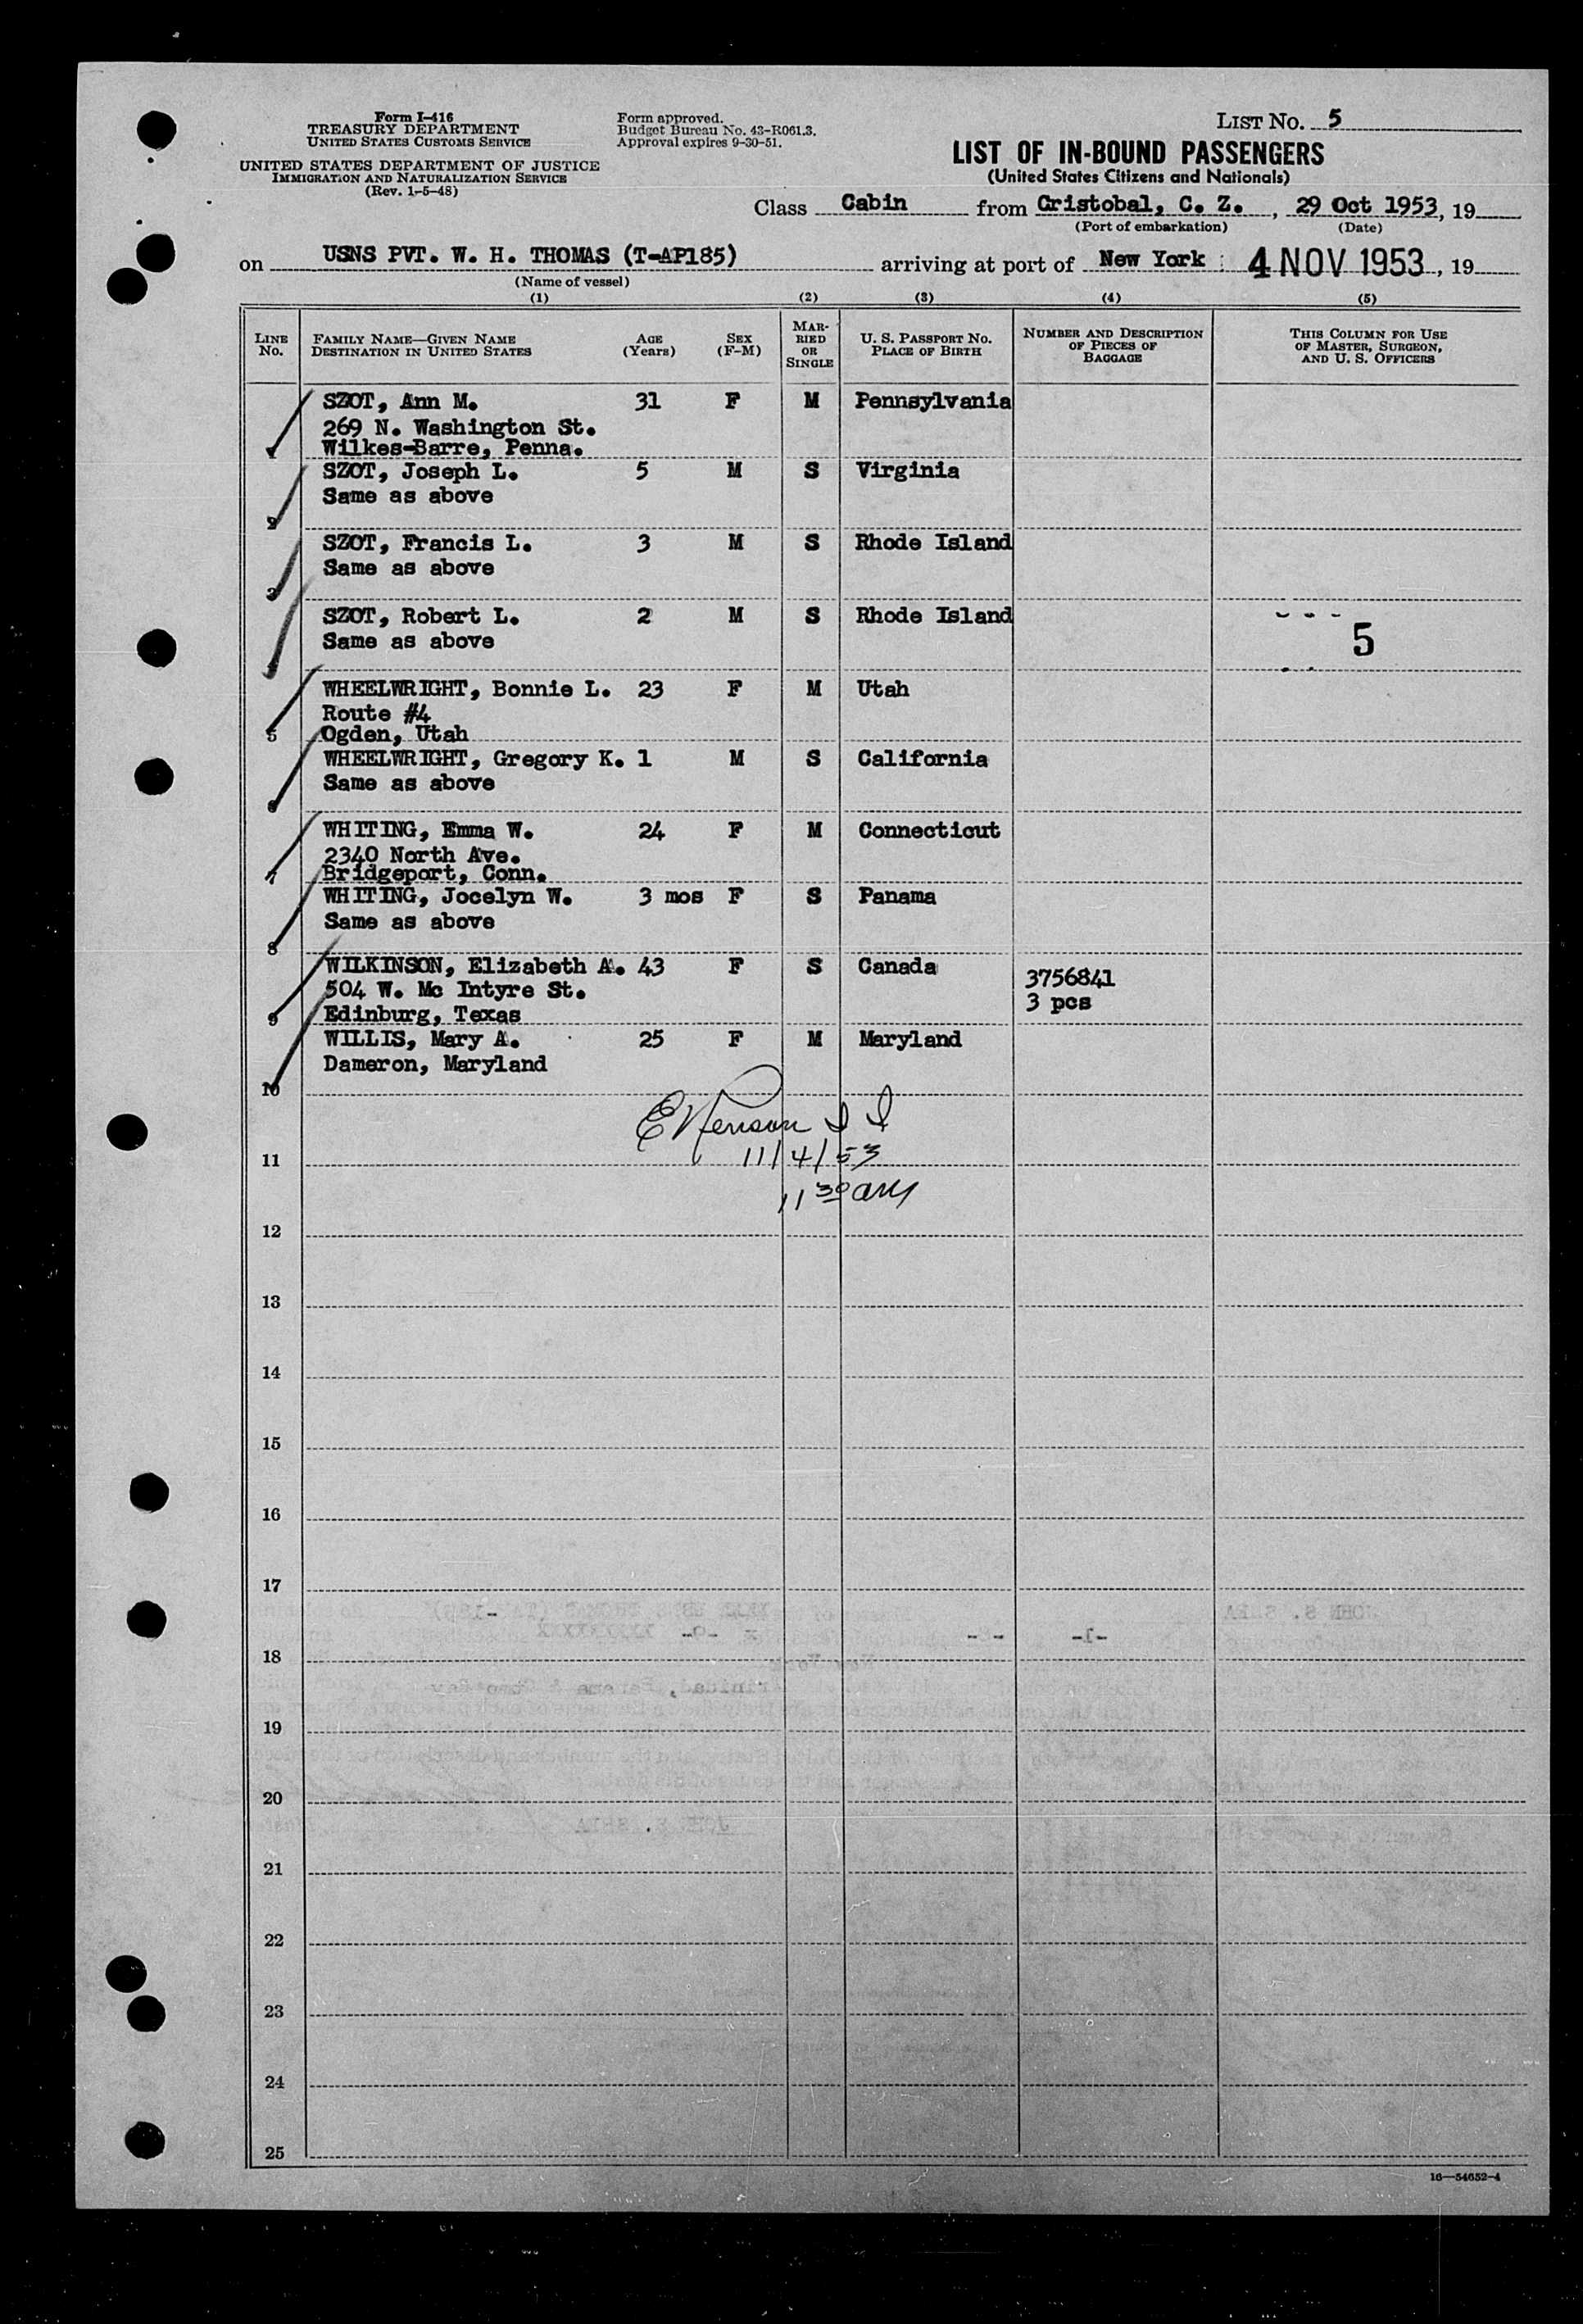 Form I-416
TREASURY DEPARTMENT
UNITED STATES CUSTOMS SERVICE
UNITED STATES DEPARTMENT OF JUSTICE
IMMIGRATION AND NATURALIZATION SERVICE
(Rev. 1-5-48)
Form approved.
Budget Bureau No. 43-R061.3.
Approval expires 9-30-51.
LIST NO. 5
LIST OF IN-BOUND PASSENGERS
(United States Citizens and Nationals)
Class Cabin from Cristobal, C. Z. , 29 Oct 1953, 19
(Port of embarkation) (Date)
on USNS PVT. W. H. THOMAS (T-AP185) arriving at port of New York 4 NOV 1953, 19
(Name of vessel)
(1) (2) (3) (4) (5)
LINE NO. FAMILY NAME—GIVEN NAME DESTINATION IN UNITED STATES AGE (Years) SEX (F-M) MARRIED OR SINGLE U. S. PASSPORT NO. PLACE OF BIRTH NUMBER AND DESCRIPTION OF PIECES OF BAGGAGE THIS COLUMN FOR USE OF MASTER, SURGEON, AND U. S. OFFICERS
SZOT, Ann M. 31 F M Pennsylvania
269 N. Washington St.
1 Wilkes-Barre, Penna.
SZOT, Joseph L. 5 M S Virginia
Same as above
2
SZOT, Francis L. 3 M S Rhode Island
Same as above
3
SZOT, Robert L. 2 M S Rhode Island
Same as above 5
4
WHEELWRIGHT, Bonnie L. 23 F M Utah
Route #4
5 Ogden, Utah
WHEELWRIGHT, Gregory K. 1 M S California
Same as above
6
WHITING, Emma W. 24 F M Connecticut
2340 North Ave.
7 Bridgeport, Conn.
WHITING, Jocelyn W. 3 mos F S Panama
Same as above
8
WILKINSON, Elizabeth A. 43 F S Canada 3756841
504 W. Mc Intyre St. 3 pcs
9 Edinburg, Texas
WILLIS, Mary A. 25 F M Maryland
Dameron, Maryland
10
11 11/4/53
11 30 am
12
13
14
15
16
17
18
19
20
21
22
23
24
25
16—54652-4